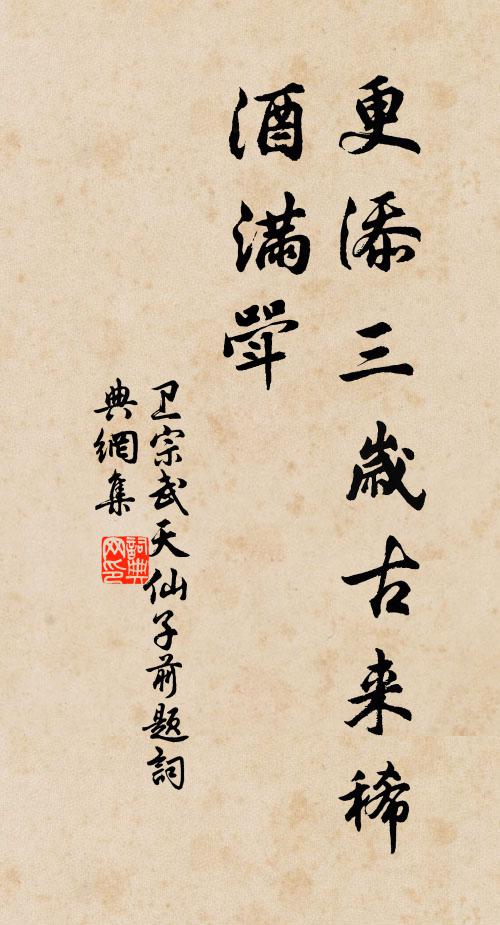 更添三歲古来稀
酒滿斝
卫宗武天仙子前題詞
典網集
詞典网印